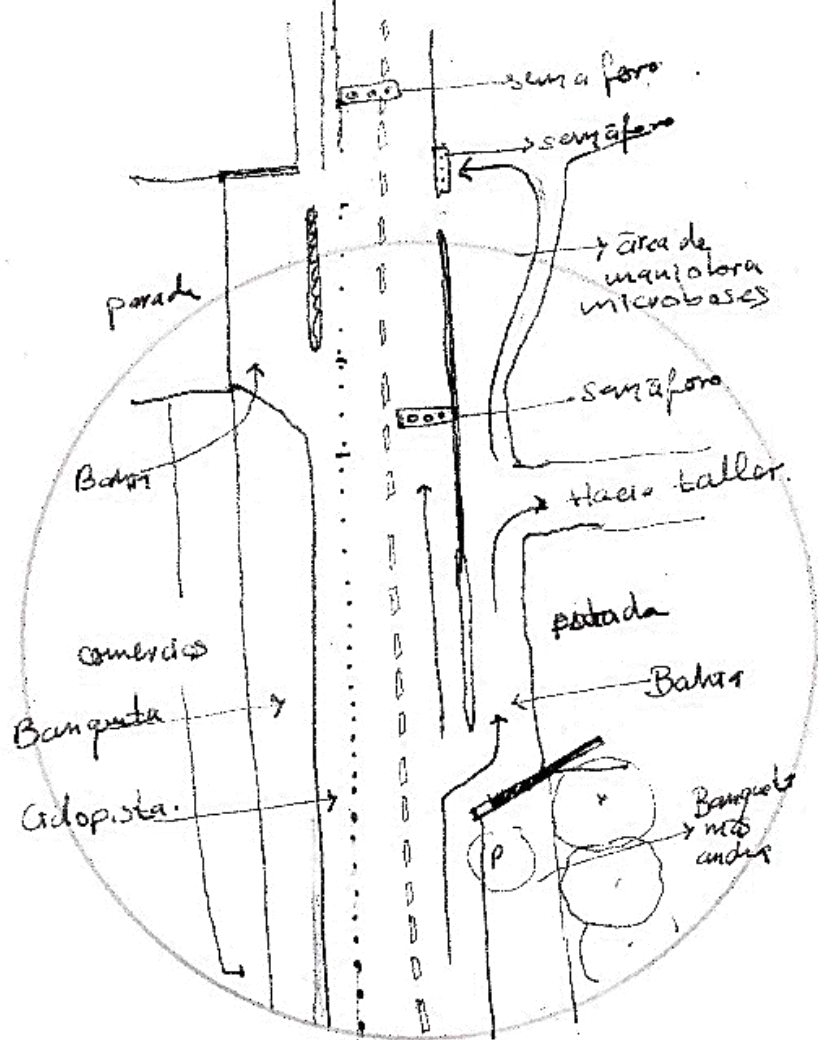 semaforo.
semáforo
área de
maniobra
microbases
parada
semáforo
Bahia
Hacia taller.
parada
comercios
Bahia
Banqueta
Ciclopista.
Banqueta
más
ancha
P